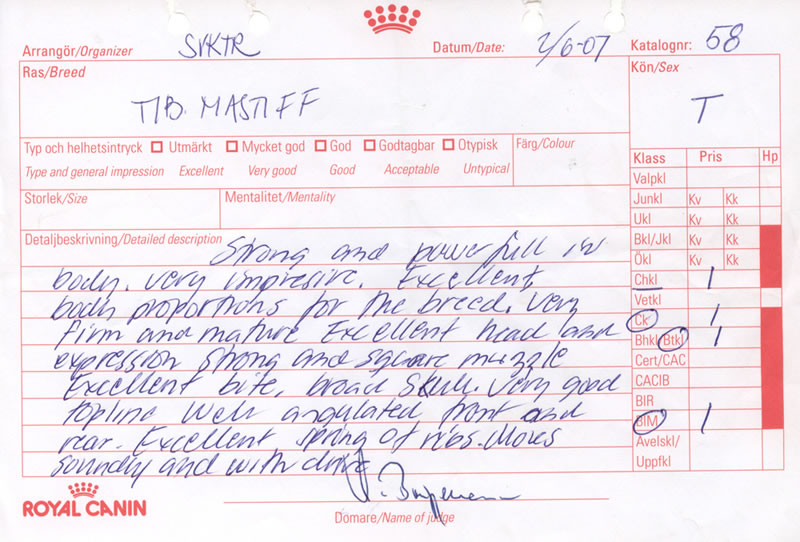 Arrangör/Organizer SVKTR Datum/Date: 2/6-07 Katalognr: 58
Ras/Breed
TIB. MASTIFF
Kön/Sex
T
Typ och helhetsintryck Utmärkt Mycket god God Godtagbar Otypisk
Type and general impression Excellent Very good Good Acceptable Untypical
Färg/Colour
Storlek/Size
Mentalitet/Mentality
Detaljbeskrivning/Detailed description
Strong and powerfull in
body. very impresive. Excellent
body proportions for the breed. very
firm and mature Excellent head and
expression strong and square muzzle
Excellent bite, broad skull. very good
topline well angulated front and
rear. Excellent spring of ribs. Moves
soundly and with drive
Domare/Name of judge
ROYAL CANIN
Klass Pris Hp
Valpkl
Junkl Kv Kk
Ukl Kv Kk
Bkl/Jkl Kv Kk
Ökl Kv Kk
Chkl 1
Vetkl
Ck 1
Bhkl/Btkl 1
Cert/CAC
CACIB
BIR
BIM 1
Avelskl/
Uppfkl